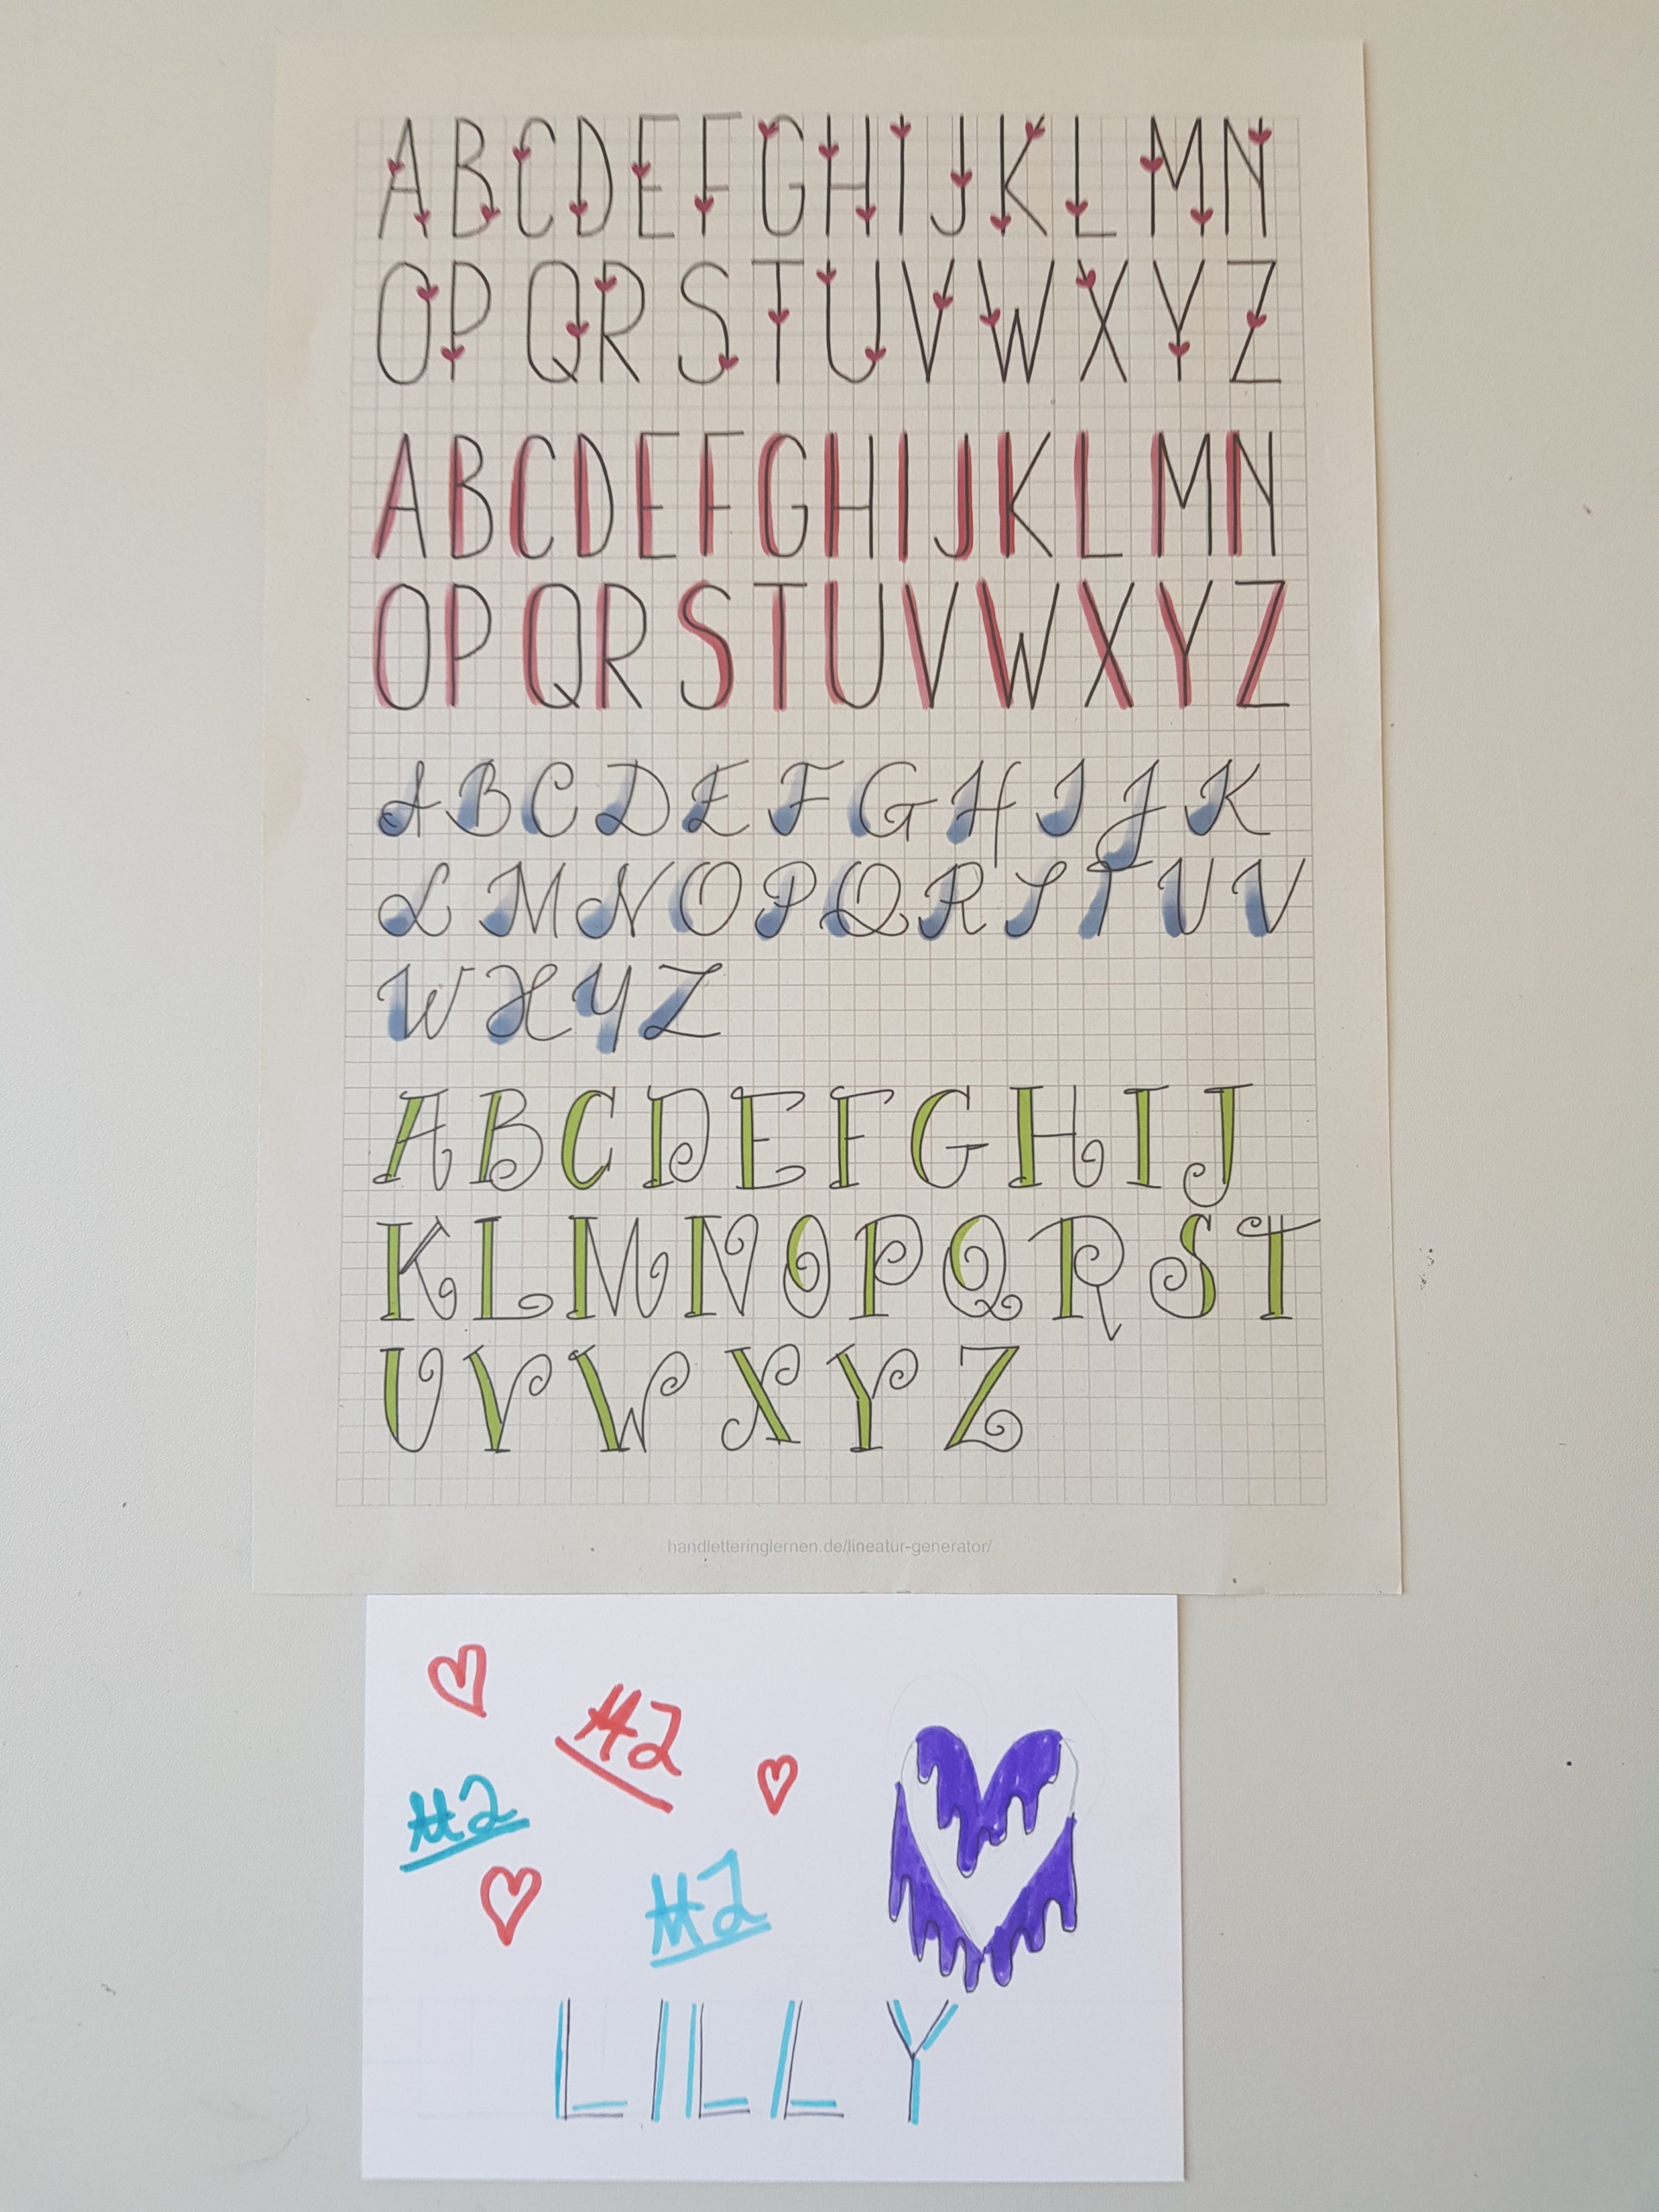 A B C D E F G H I J K L M N
O P Q R S T U V W X Y Z
A B C D E F G H I J K L M N
O P Q R S T U V W X Y Z
A B C D E F G H I J K
L M N O P Q R S T U V
W X Y Z
A B C D E F G H I J
K L M N O P Q R S T
U V W X Y Z
handletteringlernen.de/lineatur-generator/
M2
M2
M2
LILLY